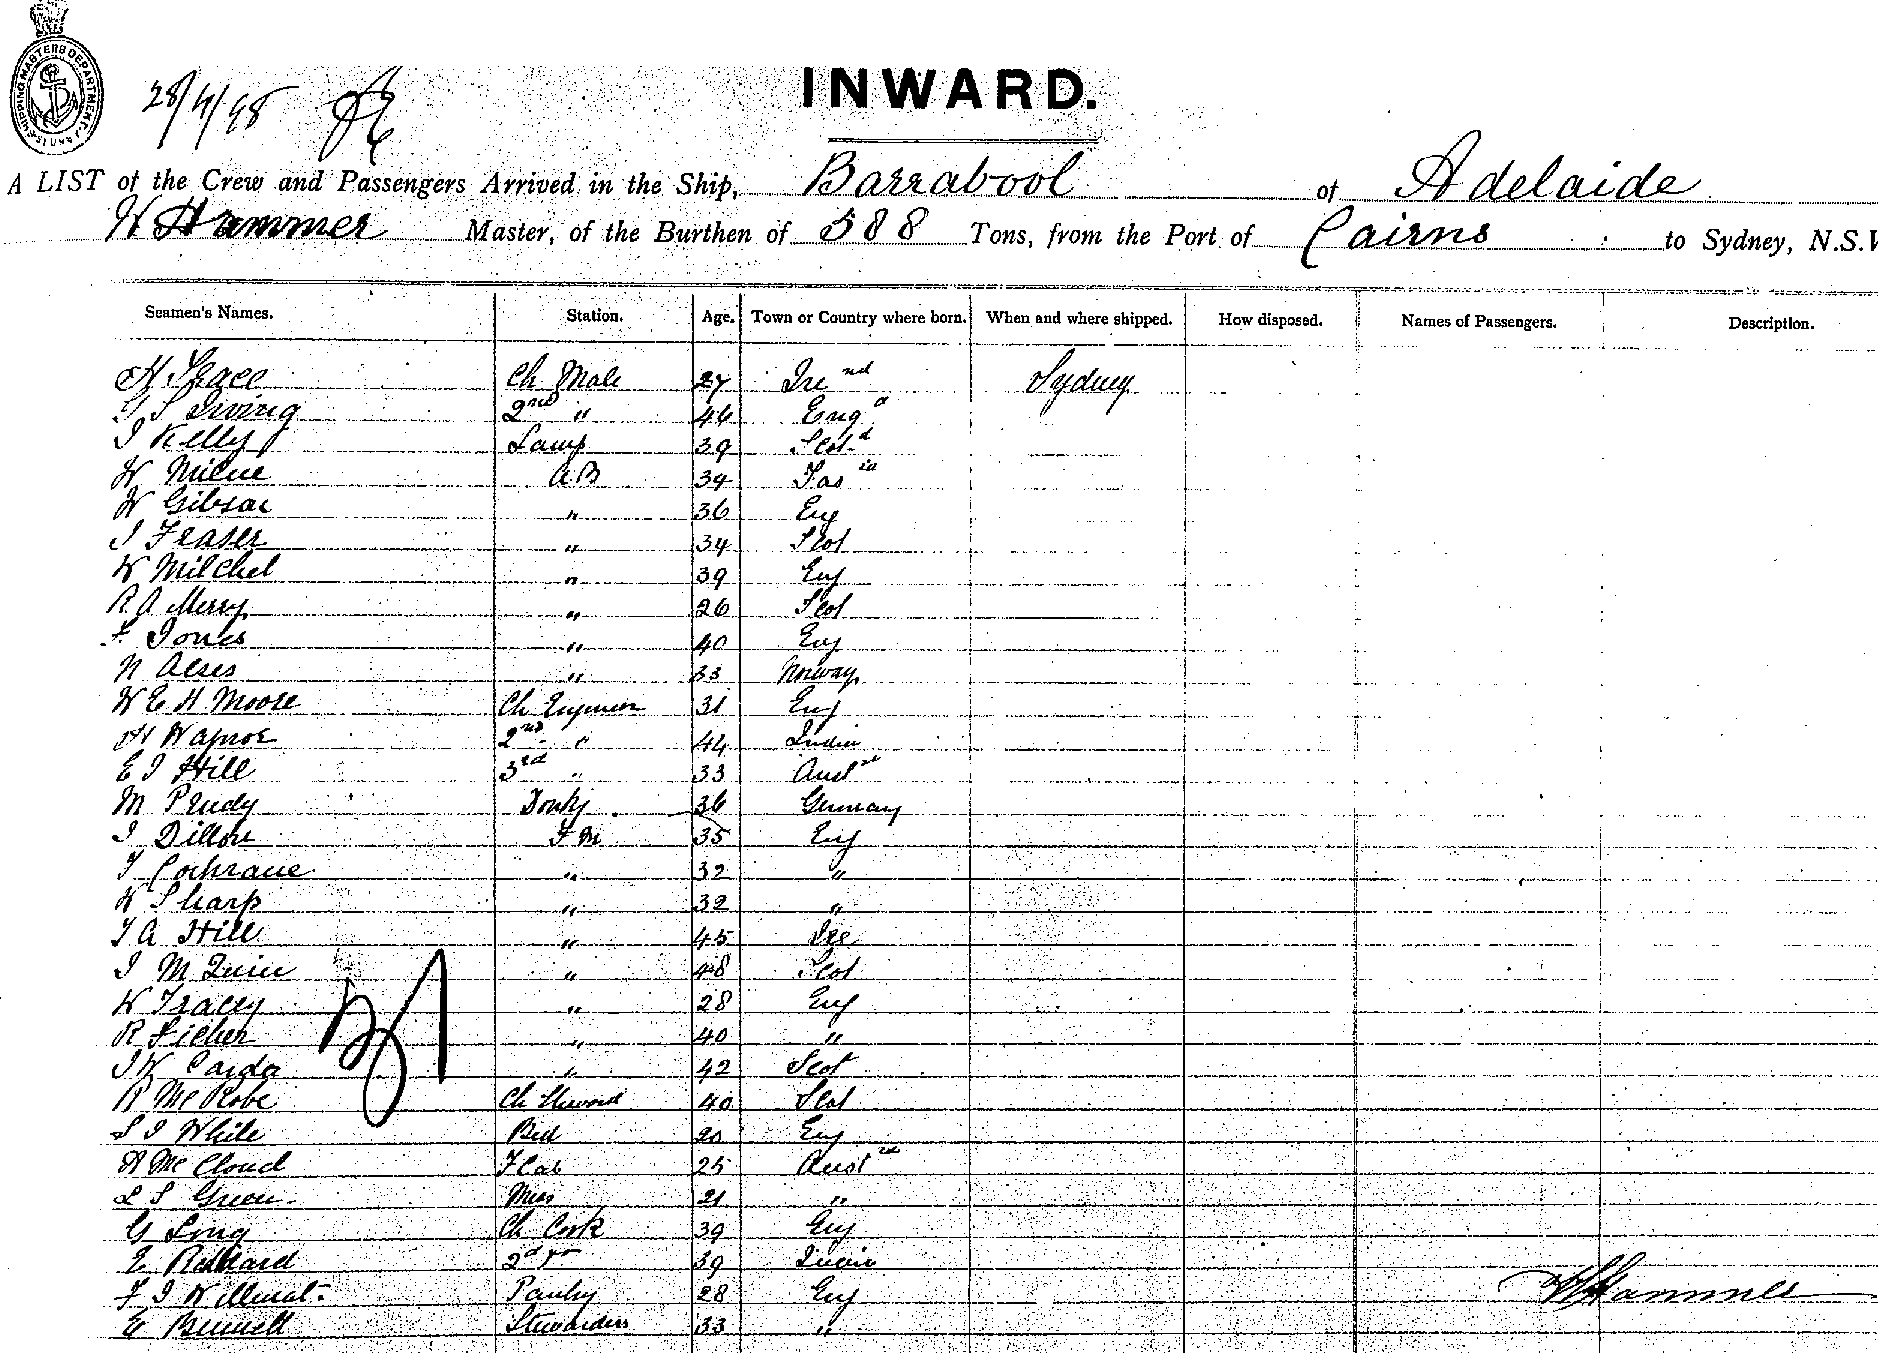 SHIPPING MASTERS DEPARTMENT
28/4/98
INWARD.
A LIST of the Crew and Passengers Arrived in the Ship, Barrabool of Adelaide
W Hammer Master, of the Burthen of 588 Tons, from the Port of Cairns to Sydney, N.S.W
Seamen's Names. Station. Age. Town or Country where born. When and where shipped. How disposed. Names of Passengers. Description.
H Grace Ch Mate 27 Ire nd Sydney
G S Irving 2nd " 46 Eng d
J Kelly Lamp 39 Scot d
W Milne AB 34 Tas ia
W Gibson " 36 Eng
J Fraser " 34 Scot
W Mitchel " 39 Eng
R A Merry " 26 Scot
F Jones " 40 Eng
N Acres " 33 Norway
W E H Moore Ch Engineer 31 Eng
H 2nd " 44 India
E J Hill 3rd " 33 Aust
M Prudy Donky 36 Germany
J Dillon F M 35 Eng
T Cochrane " 32 "
W Sharp " 32 "
T A Hill " 45 Ire
J M Quin " 48 Scot
W Tracey " 28 Eng
R " 40 "
J W " 42 Scot
R Mc Robe Ch Steward 40 Scot
S J White 20 Eng
A Mc Cloud F Cab 25 Aust
L S Green Mess 21 "
G Long Ch Cook 39 Eng
E 2nd 39 India
F J Willmat Pantry 28 Eng
W Hammer
E Bennett Stewardess 33 "